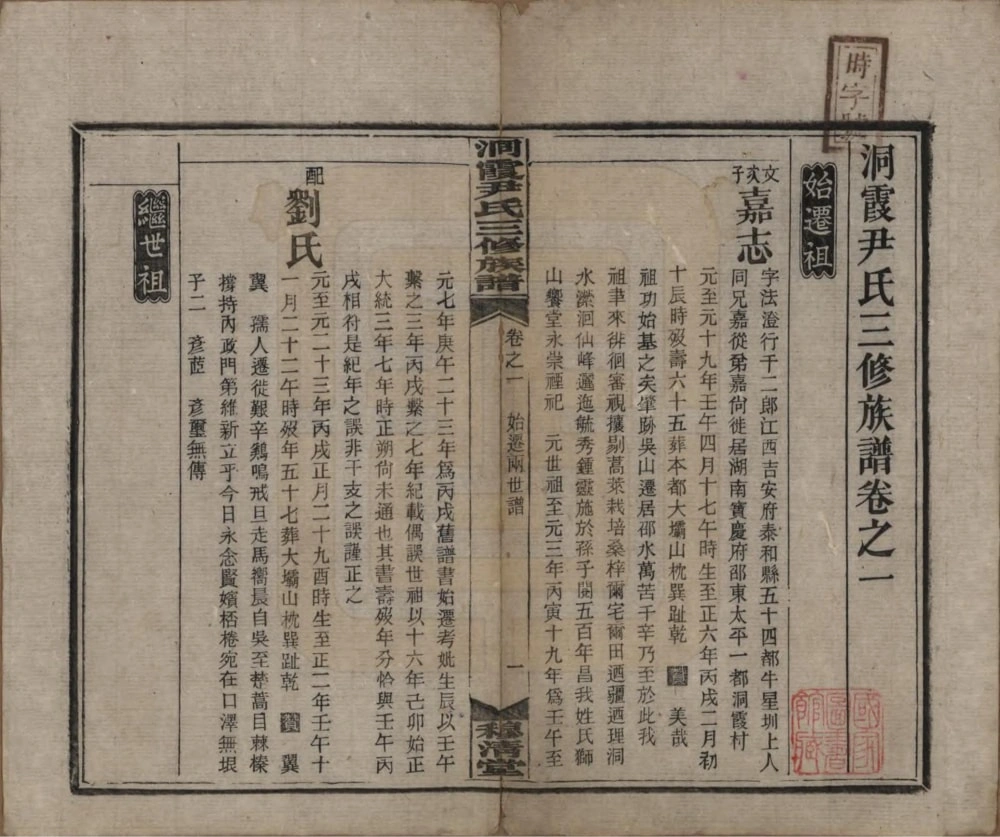 時字號
洞霞尹氏三修族譜卷之一
始遷祖
文次子
嘉志
字法澄行千二郎江西吉安府泰和縣五十四都牛星圳上人
同兄嘉從弟嘉尙徙居湖南寶慶府邵東太平一都洞霞村
元至元十九年壬午四月十七午時生至正六年丙戌二月初
十辰時歿壽六十五葬本都大壩山枕巽趾乾 贊 美哉
祖功始基之矣肇跡吳山遷居邵水萬苦千辛乃至於此我
祖聿來徘徊審視攘剔蒿萊栽培桑梓爾宅爾田迺疆迺理洞
水瀠洄仙峰邐迤毓秀鍾靈施於孫子閱五百年昌我姓氏獅
山饗堂永崇禋祀 元世祖至元三年丙寅十九年爲壬午至
洞霞尹氏三修族譜
卷之一
始遷兩世譜
一
穆清堂
元七年庚午二十三年爲丙戌舊譜書始遷考妣生辰以壬午
繫之三年丙戌繫之七年紀載偶誤世祖以十六年己卯始正
大統三年七年時正朔尙未通也其書壽歿年分恰與壬午丙
戌相符是紀年之誤非干支之誤謹正之
配
劉氏
元至元二十三年丙戌正月二十九酉時生至正二年壬午十
一月二十二午時歿年五十七葬大壩山枕巽趾乾 贊 翼
翼 孺人遷徙艱辛鷄鳴戒旦走馬嚮晨自吳至楚蒿目棘榛
撐持內政門第維新立乎今日永念賢嬪栝棬宛在口澤無垠
子二 彥蒞 彥璽無傳
繼世祖
國家圖書館藏